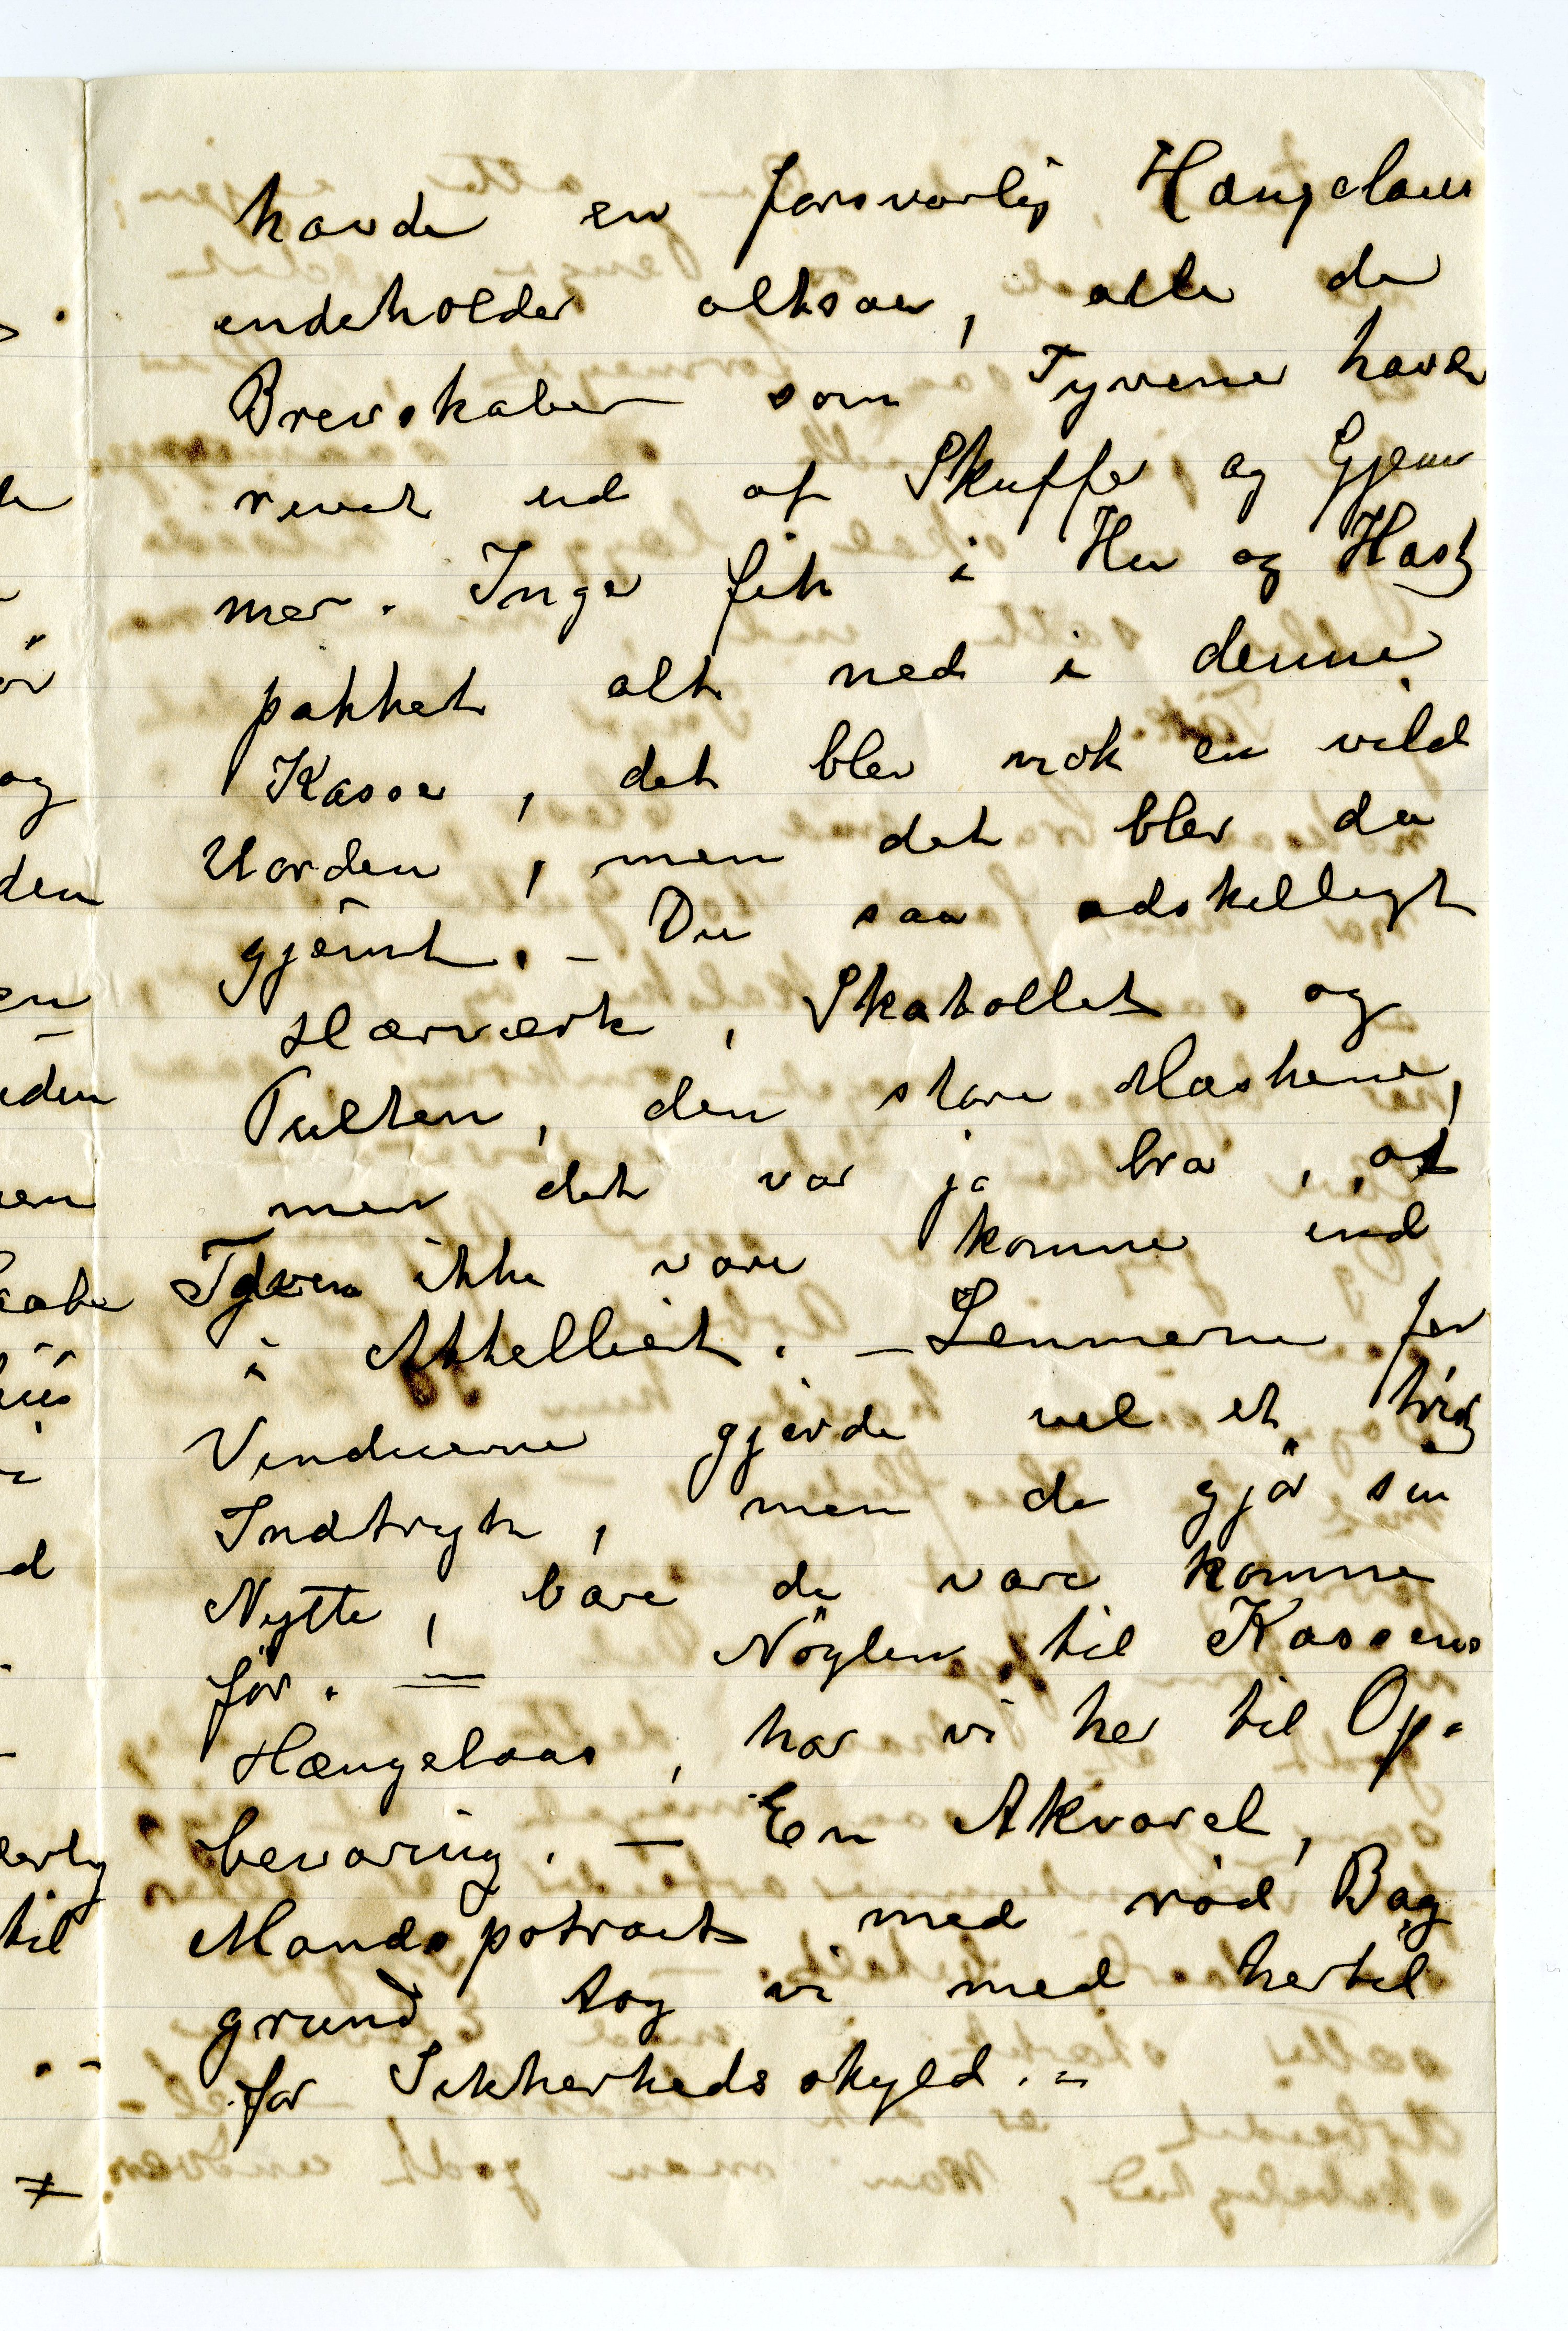 havde en forsvarlig Hængelaas
indeholder altsaa, alle de
Brevskaber som Tyvene havde
revet ud af Skuffer og Gjem
mer. Inger fik i Hu og Hast
pakket alt ned i denne
Kasse, det blev nok en vild
Uorden, men det blev da
gjemt. – Du saa adskilligt
Hærværk, Skatollet og
Pulten, den store Maskine,
men det var ja bra, at
Tyven ikke vare komne ind
i Athelliert. – Lemmerne for
Vinduerne gjorde vel et trist
Indtryk, men de gjör sin
Nytte, bare de vare komne
för. — Nöglen til Kassens
Hængelaas, har vi her til Op-
bevaring. – En Akvarel,
Mandsportræt med röd Bag
grund tog vi med hertil
for Sikkerhedsskyld. –